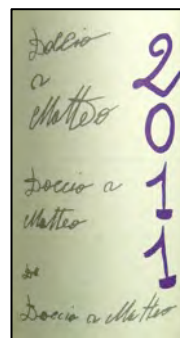 Doccio
a
Matteo
Doccio a
Matteo
De
Doccio a Matteo
2
0
1
1